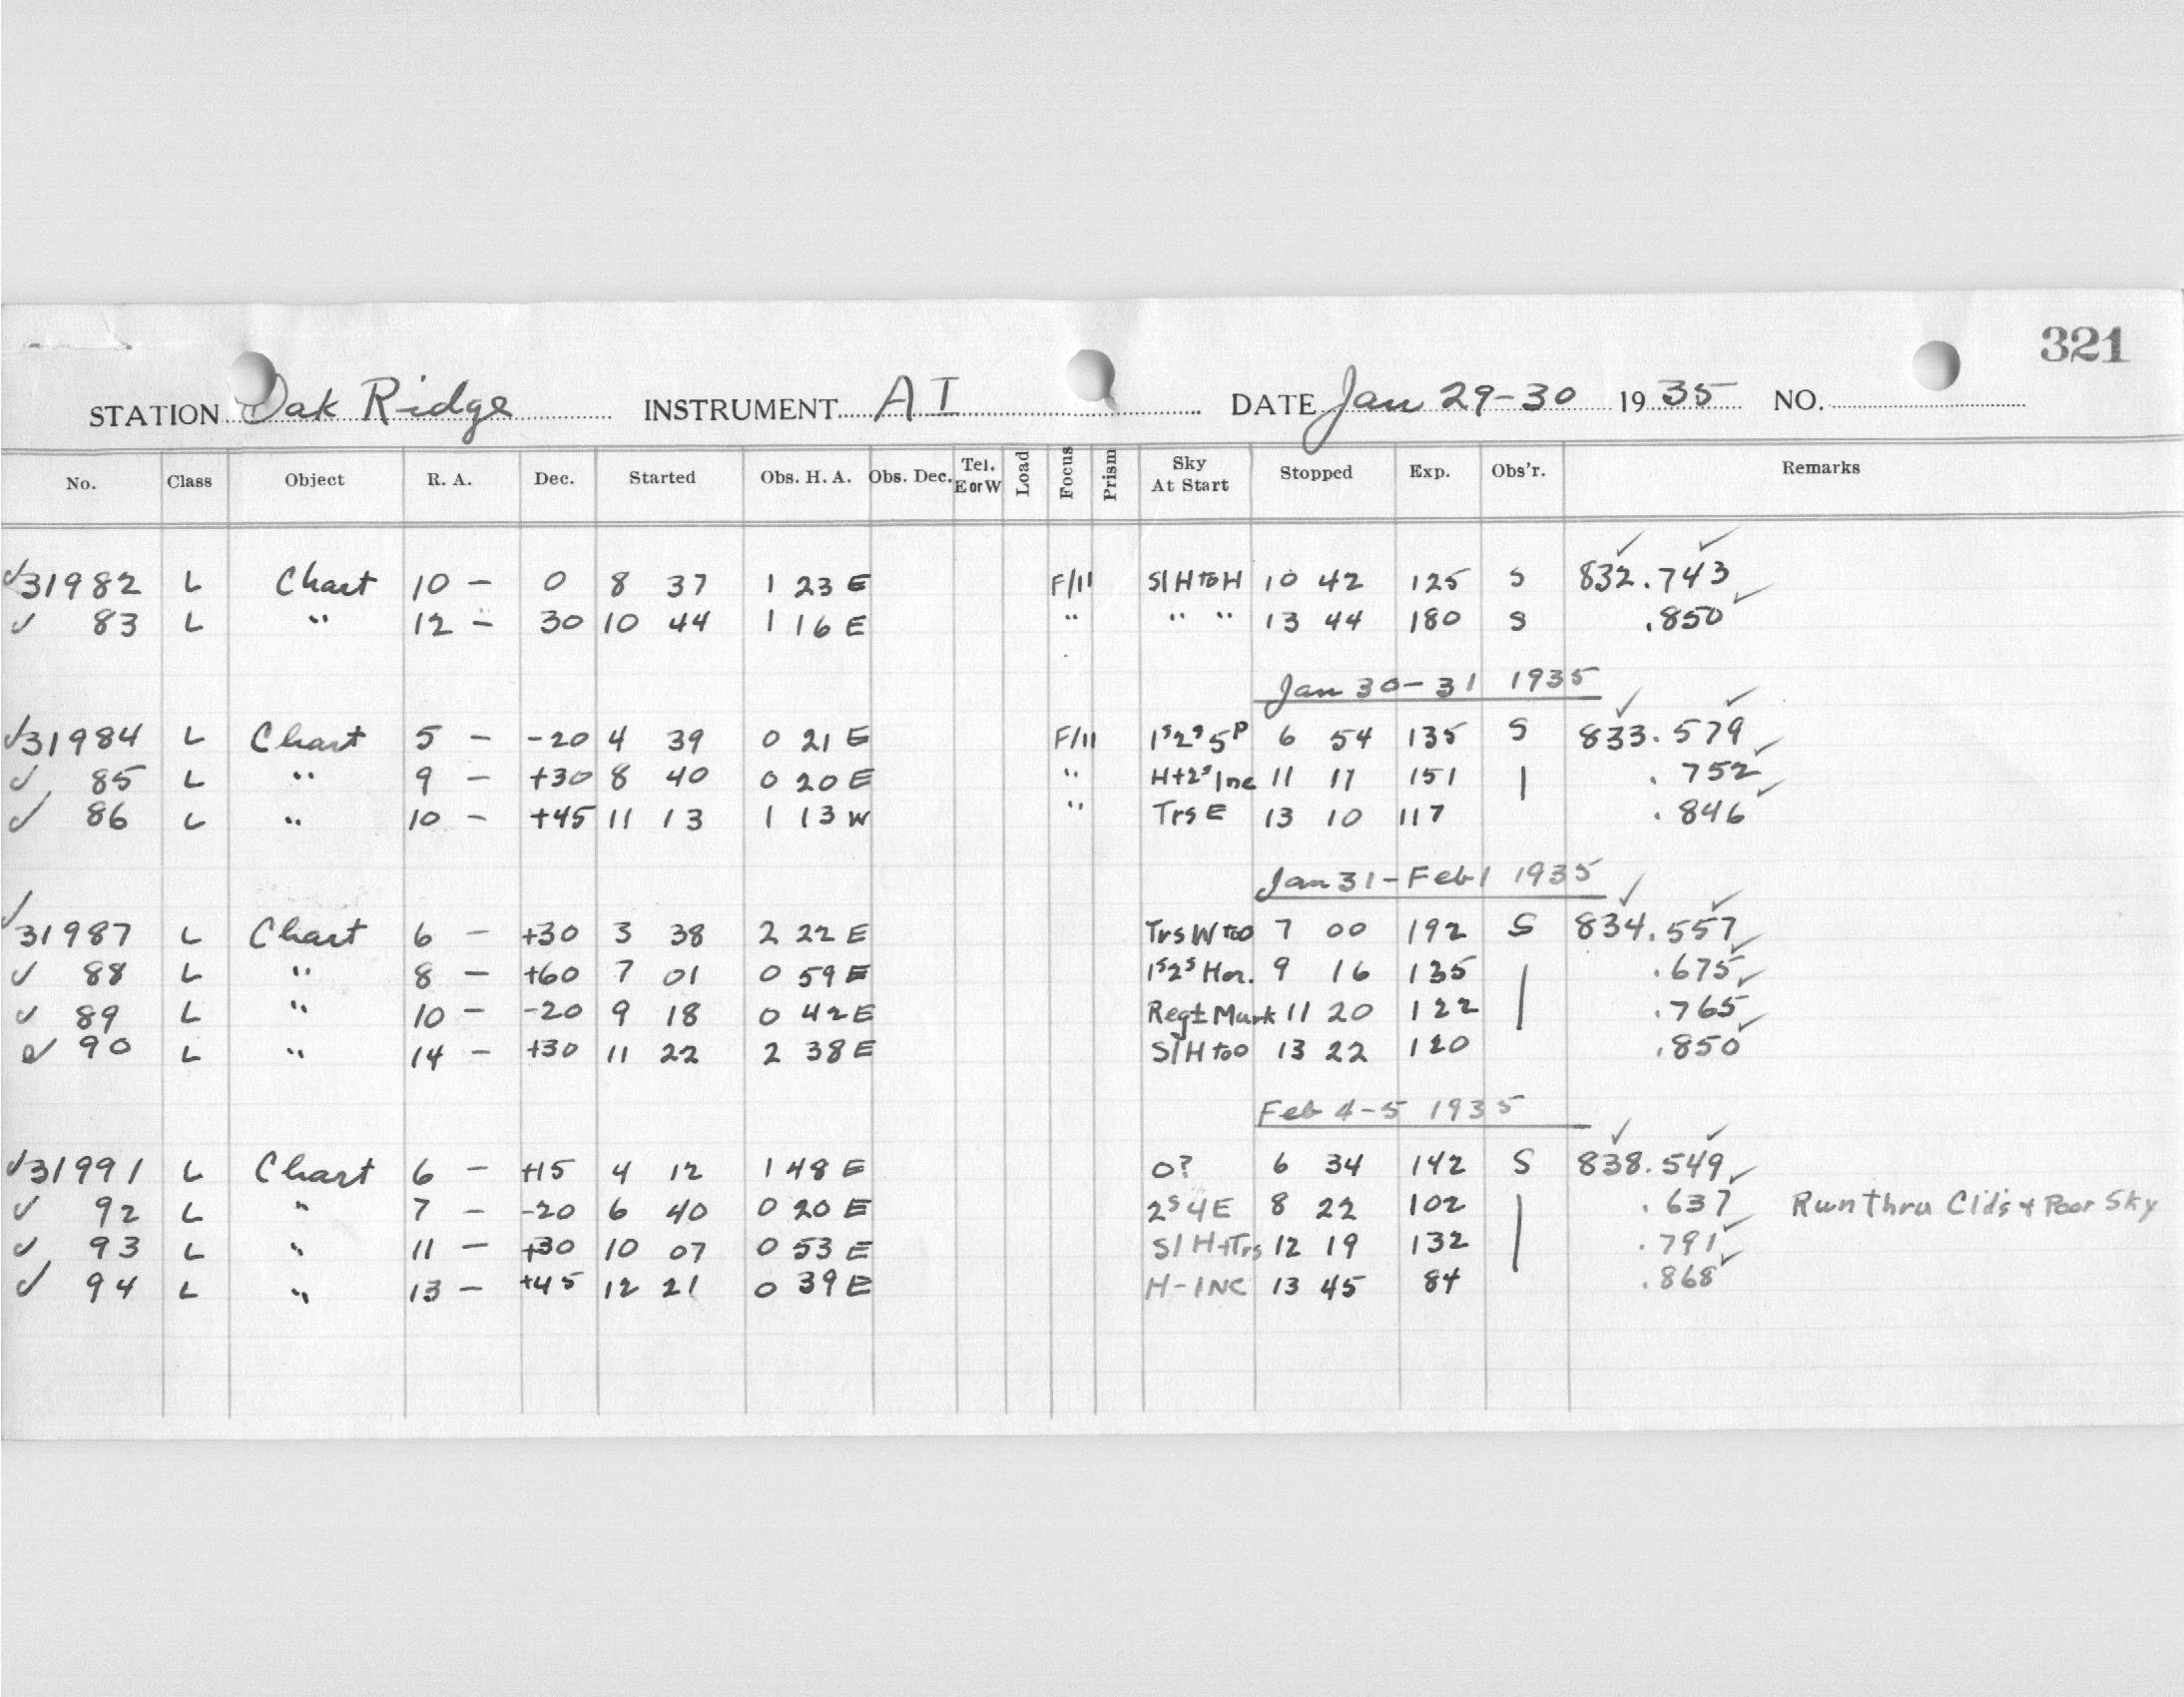 321
STATION Oak Ridge INSTRUMENT AI DATE Jan 29-30 1935 NO.
No. Class Object R. A. Dec. Started Obs. H. A. Obs. Dec. Tel. E or W Load Focus Prism Sky At Start Stopped Exp. Obs'r. Remarks
✓31982 L Chart 10 - 0 8 37 1 23 E F/11 Sl H to H 10 42 125 S 832.743
✓ 83 L " 12 - 30 10 44 1 16 E " " " 13 44 180 S .850
Jan 30-31 1935
✓31984 L Chart 5 - -20 4 39 0 21 E F/11 1ˢ2ˢ5ᴾ 6 54 135 S 833.579
✓ 85 L " 9 - +30 8 40 0 20 E " H+2ˢInc 11 11 151 | .752
✓ 86 L " 10 - +45 11 13 1 13 W " Trs E 13 10 117 .846
Jan 31-Feb 1 1935
✓31987 L Chart 6 - +30 3 38 2 22 E Trs W to 0 7 00 192 S 834.557
✓ 88 L " 8 - +60 7 01 0 59 E 1ˢ2ˢ Hor. 9 16 135 | .675
✓ 89 L " 10 - -20 9 18 0 42 E Reg± Murk 11 20 122 .765
✓ 90 L " 14 - +30 11 22 2 38 E Sl H to 0 13 22 120 .850
Feb 4-5 1935
✓31991 L Chart 6 - +15 4 12 1 48 E 0? 6 34 142 S 838.549
✓ 92 L " 7 - -20 6 40 0 20 E 2ˢ4E 8 22 102 | .637 Run thru Cld's + Poor Sky
✓ 93 L " 11 - +30 10 07 0 53 E Sl H+Trs 12 19 132 .791
✓ 94 L " 13 - +45 12 21 0 39 E H-INC 13 45 84 .868